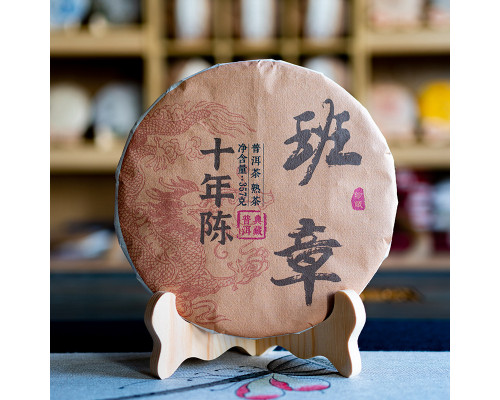 班章
珍藏
普洱茶 熟茶
净含量:357克
典藏
普洱
十年陈